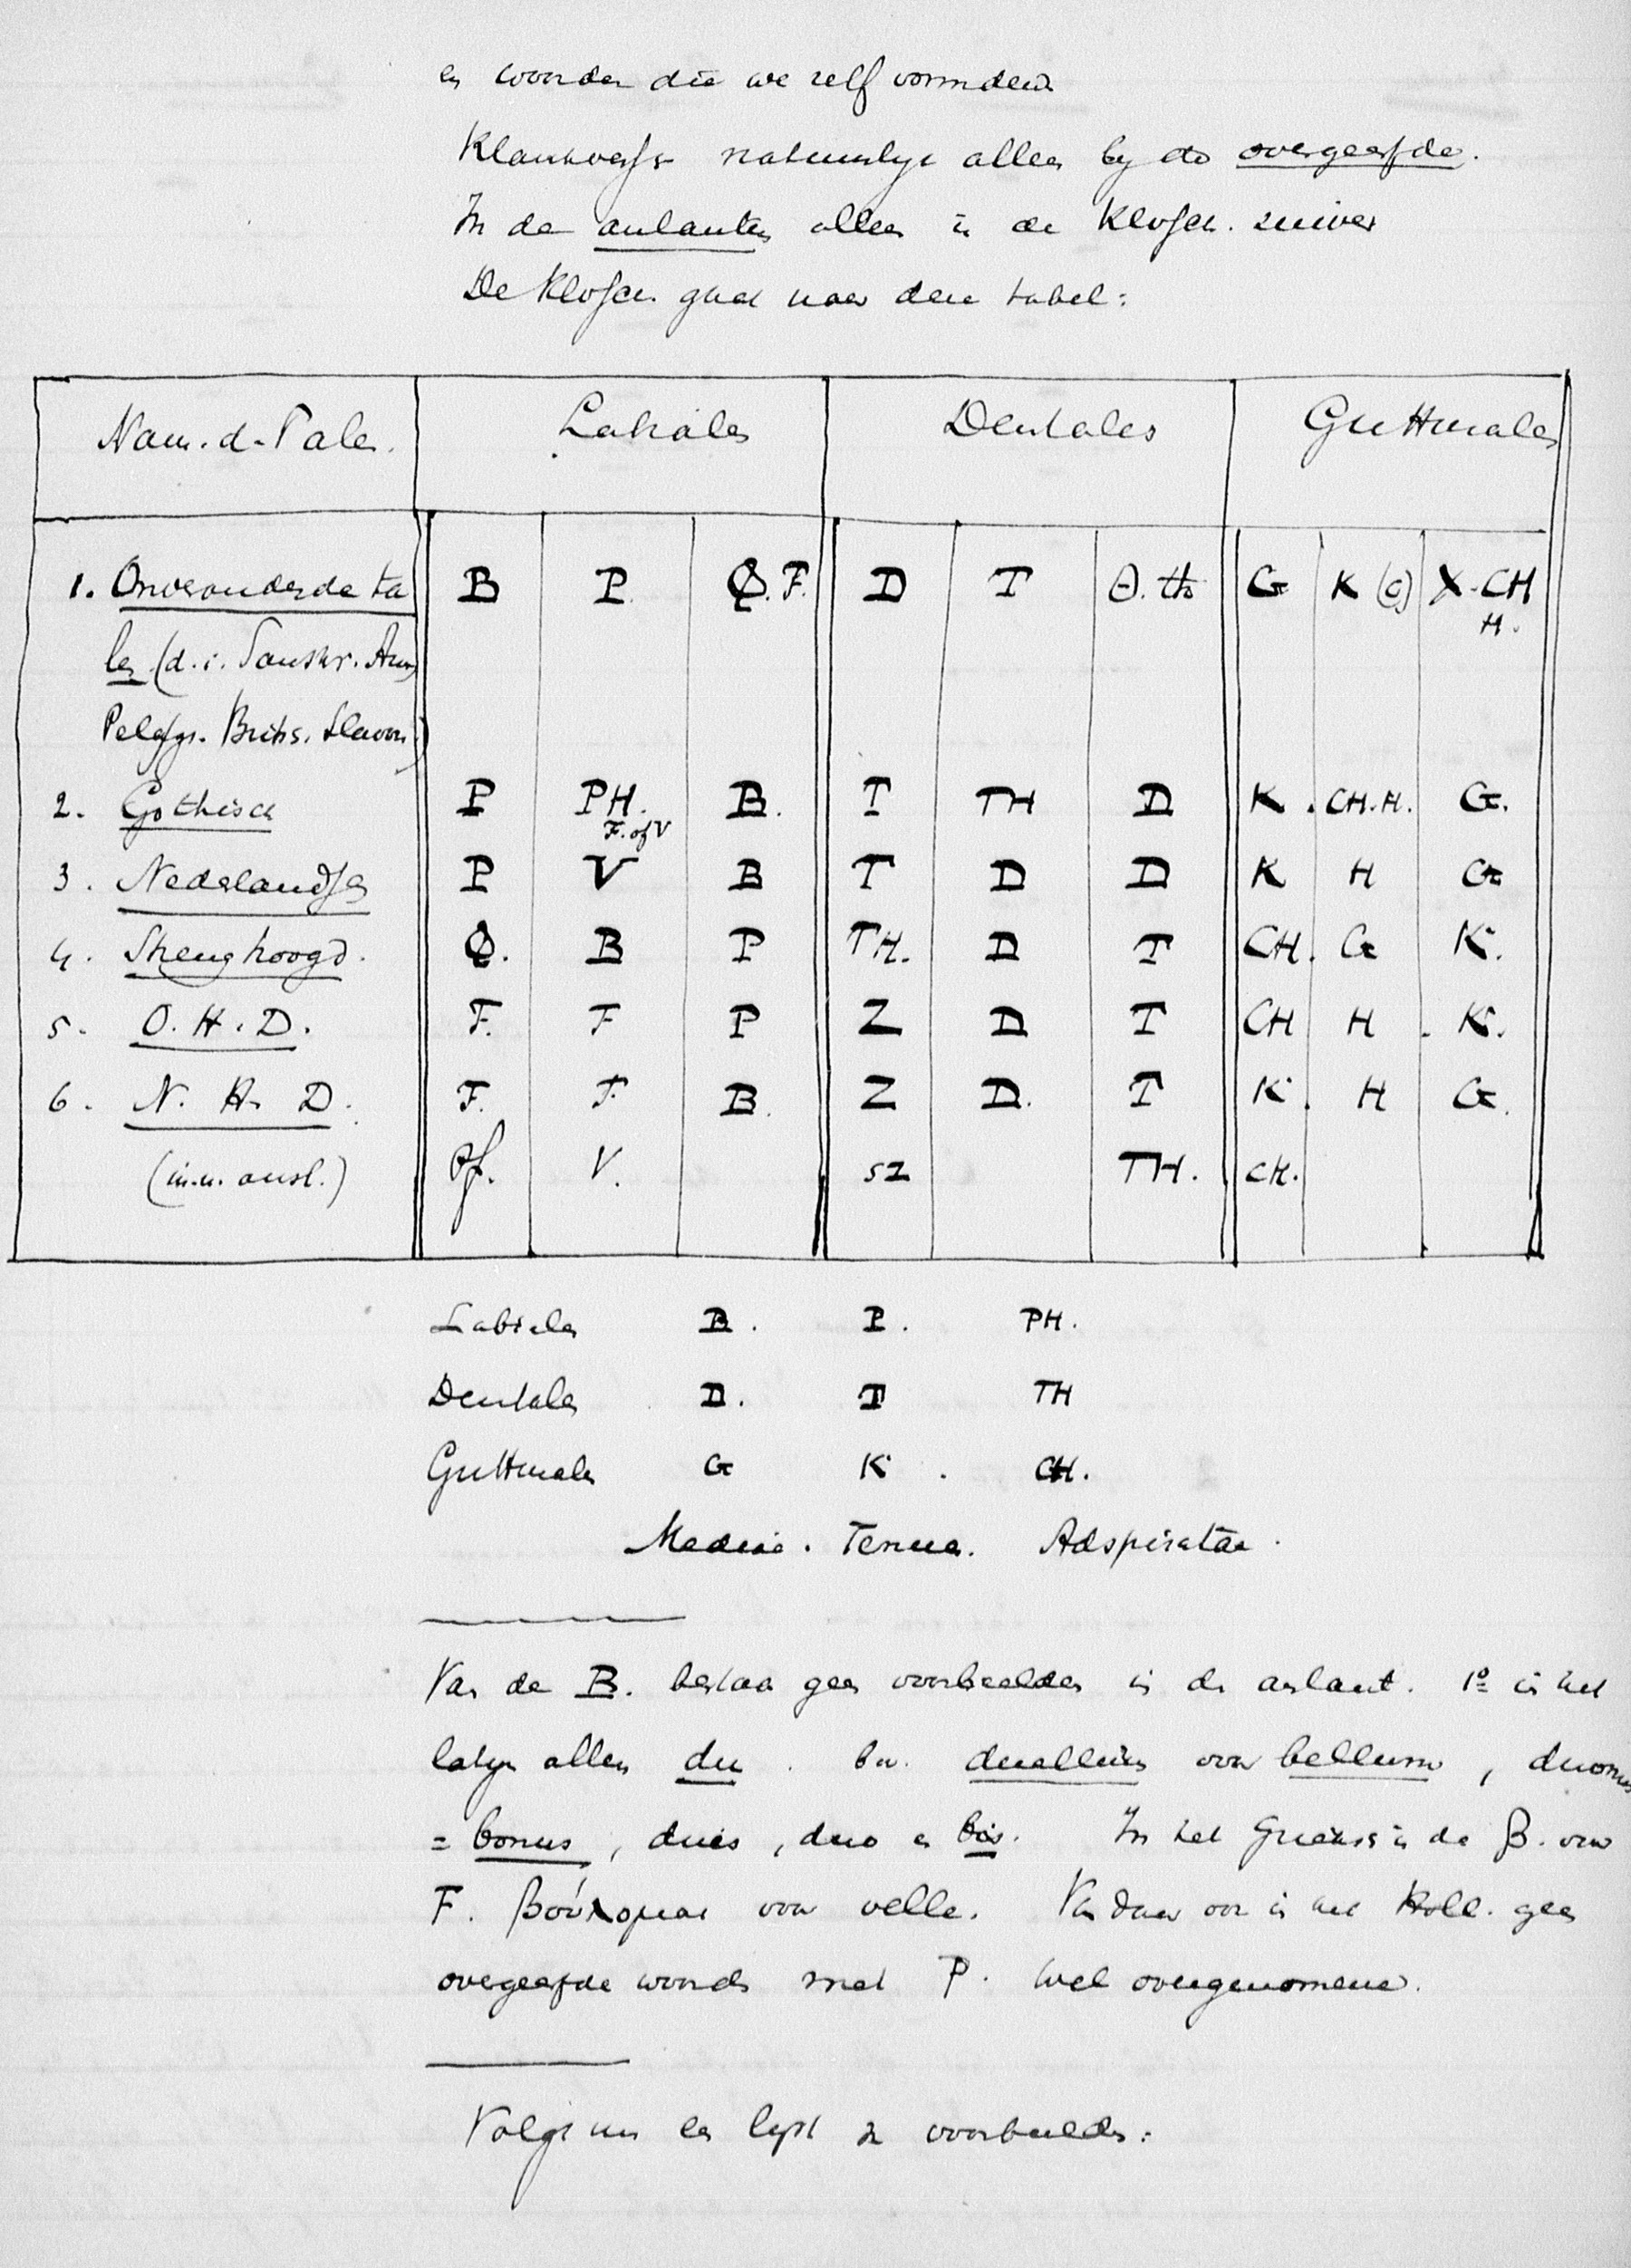 en woorden die we zelf vormden
Klankversch natuurlyk alleen by de overgeërfde.
In de anlauten alleen is de Klvsch. zuiver
De Klvsch. gaat naar deze tabel:
Nam. d. Talen. Labiales Dentales Gutturales
1. Onveranderde ta B P. Φ. F. D T Θ. th G K (c) X-CH
H.
len (d. i. Sanskr. Arm
Pelasg. Brits. Slavon.)
2. Gothisch P PH. B. T TH D K. CH.H. G.
F. of V
3. Nederlandsch P V B T D D K H G
4. Strenghoogd. Φ. B P TH. D T CH. G K.
5. O. H. D. F. F P Z D T CH H K.
6. N. H. D. F. F. B. Z D. T K. H G.
(in. n. ausl.) Pf. V. SZ TH. CH.
Labiales B. P. PH.
Dentales D. T TH
Gutturales G K. CH.
Mediae. Tenues. Adspiratae.
Van de B. bestaan geen voorbeelden in de anlaut. 1º in het
latyn alleen du. bv. duellum voor bellum, duonus
= bonus, duis, duo en bis. In het Grieksch is de β. voor
F. βούλομαι voor velle. Van daar ook in het Holl. geen
overgeërfde woorden met P. Wel overgenomene.
Volgt nu een lyst v voorbeelden: